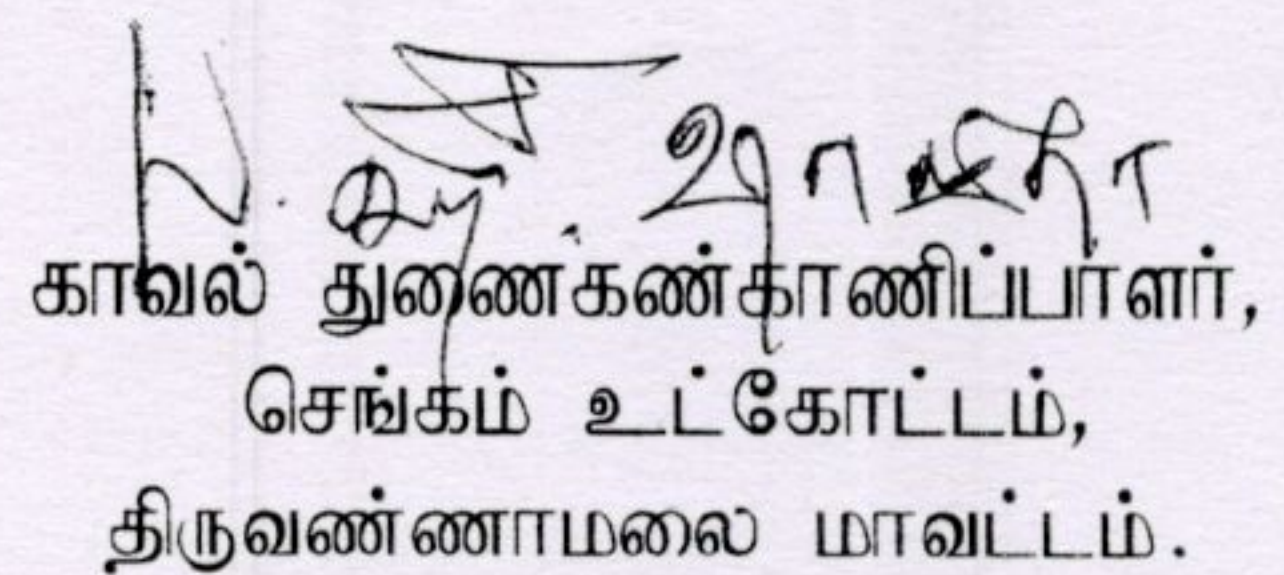 காவல் துணைகண்காணிப்பாளர்,
செங்கம் உட்கோட்டம்,
திருவண்ணாமலை மாவட்டம்.